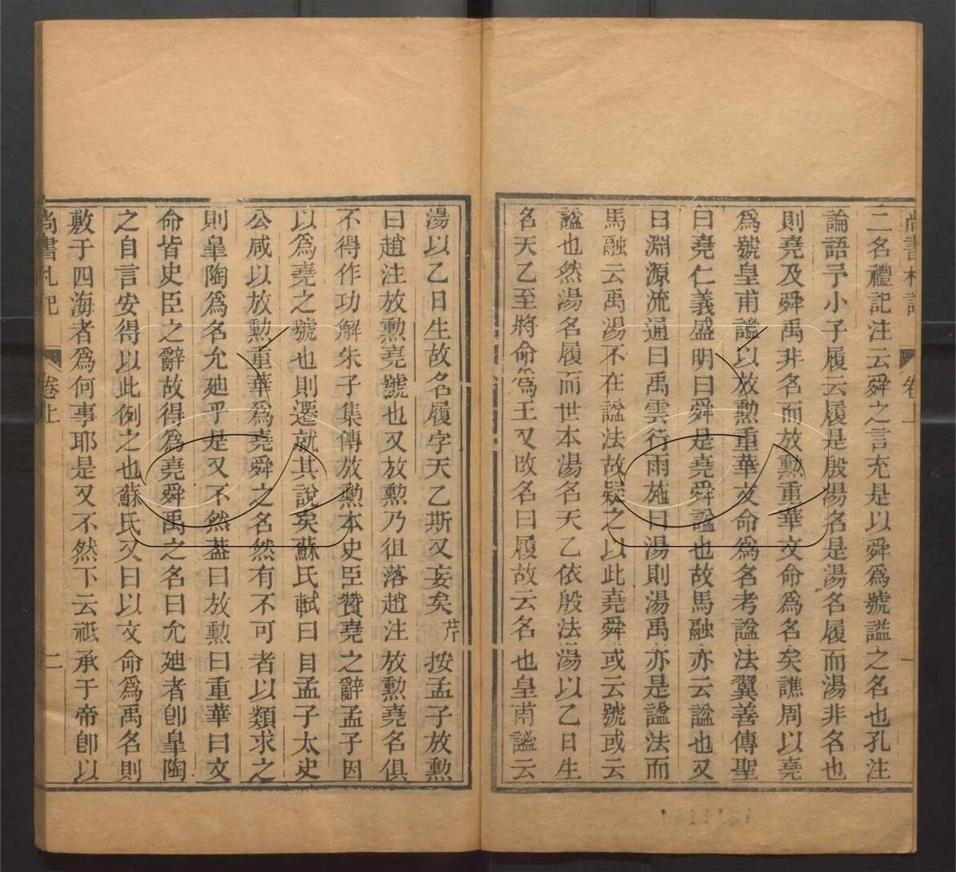 尚書札記 卷上 一
二名禮記注云舜之言充是以舜爲號謚之名也孔注
論語予小子履云履是殷湯名是湯名履而湯非名也
則堯及舜禹非名而放勲重華文命爲名矣譙周以堯
爲號皇甫謐以放勲重華文命爲名考謚法翼善傳聖
曰堯仁義盛明曰舜是堯舜謚也故馬融亦云謚也又
曰淵源流通曰禹雲行雨施曰湯則湯禹亦是謚法而
馬融云禹湯不在謚法故疑之以此堯舜或云號或云
謚也然湯名履而世本湯名天乙依殷法湯以乙日生
名天乙至將命爲王又改名曰履故云名也皇甫謐云
湯以乙日生故名履字天乙斯又妄矣芹按孟子放勲
曰趙注放勲堯號也又放勲乃徂落趙注放勲堯名俱
不得作功解朱子集傳放勲本史臣贊堯之辭孟子因
以爲堯之號也則遷就其說矣蘇氏軾曰目孟子太史
公咸以放勲重華爲堯舜之名然有不可者以類求之
則皐陶爲名允廸乎是又不然葢曰放勲曰重華曰文
命皆史臣之辭故得爲堯舜禹之名曰允廸者卽皐陶
之自言安得以此例之也蘇氏又曰以文命爲禹名則
敷于四海者爲何事耶是又不然下云祗承于帝卽以
尚書札記 卷上 二